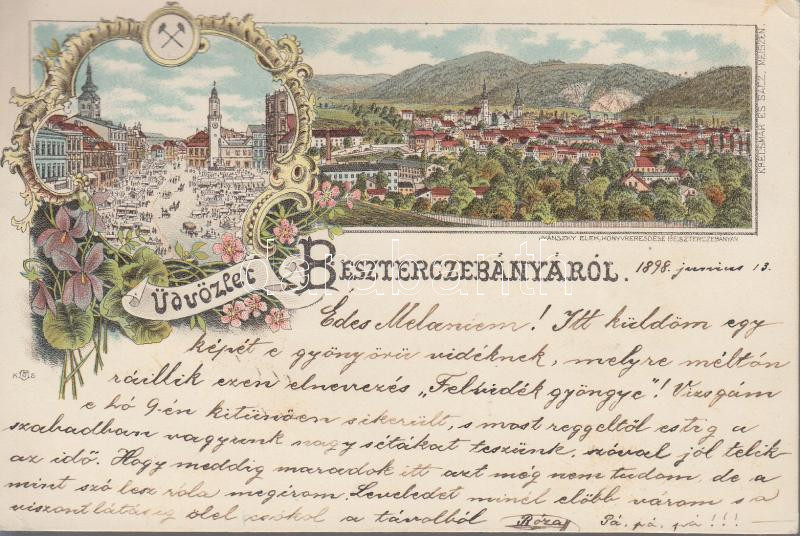 KRECSMÁR ÉS SATZ, MEISZEN.
MÁNSZKY ELEK, KÖNYVKERESDÉSE BESZTERCZEBÁNYÁN
Üdvözlet
BESZTERCZEBÁNYÁRÓL. 1898. junius 13.
Édes Melaniem! Itt küldöm egy
képét e gyönyörű vidéknek, melyre méltón
ráillik ezen elnevezés „Felvidék gyöngye"! Vizsgám
e hó 9-én kitünően sikerült, s most reggeltől estig a
szabadban vagyunk nagy sétákat teszünk, szóval jól telik
az idő. Hogy meddig maradok itt azt még nem tudom, de a
mint szó lesz róla megirom. Leveledet minél előbb várom s a
viszontlátásig ölel csókol a távolból Róza Pá, pá, pá!!!
K S